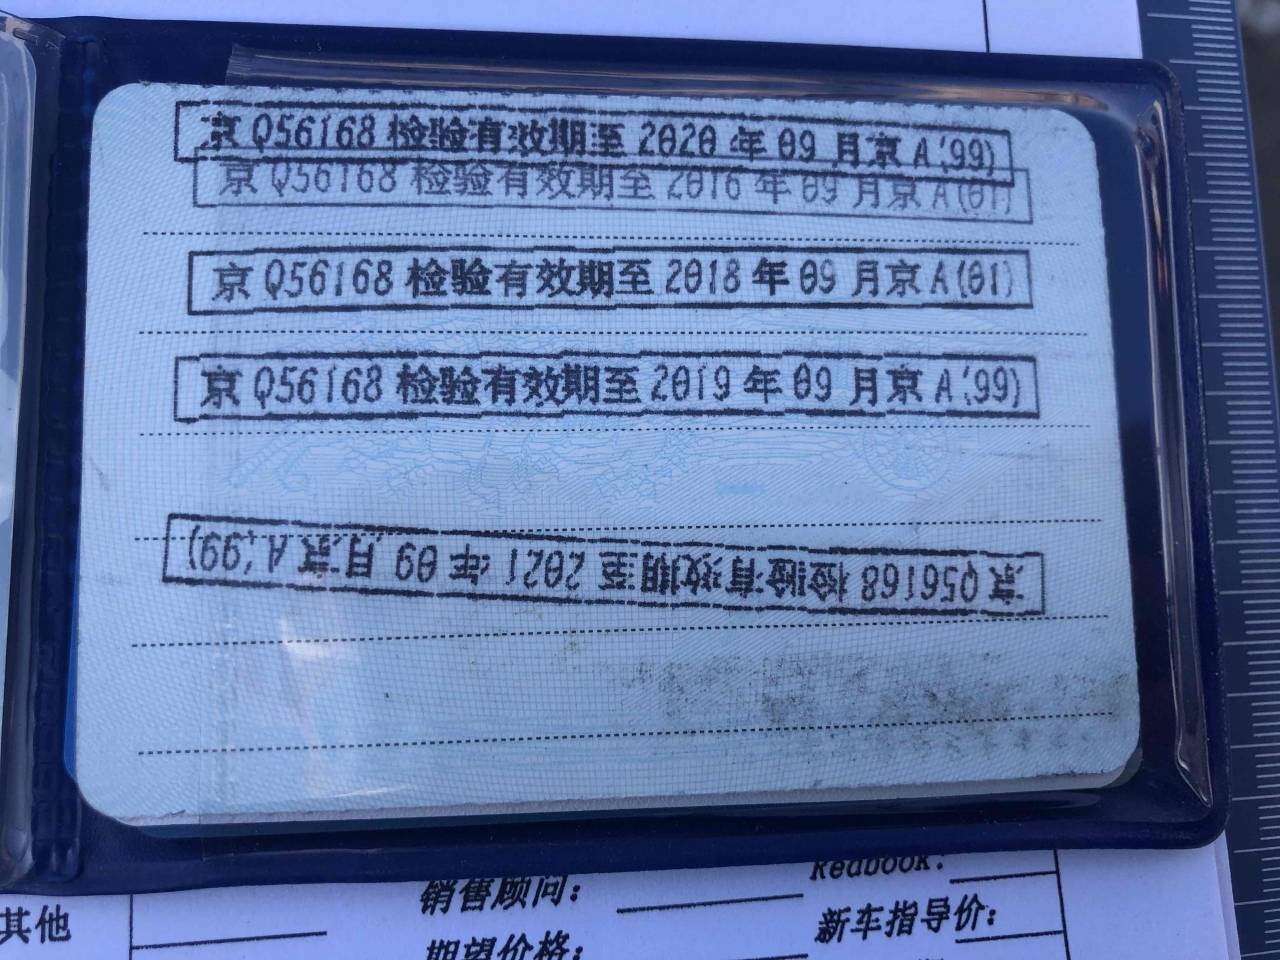 京Q56168 检验有效期至 2020 年 09 月京A'99)
京Q56168 检验有效期至 2016 年 09 月京A(01)
京Q56168 检验有效期至 2018 年 09 月京A(01)
京Q56168 检验有效期至 2019 年 09 月京A'99)
京Q56168 检验有效期至 2021 年 09 月京A'99)
Redbook:
销售顾问:
其他
新车指导价:
期望价格: